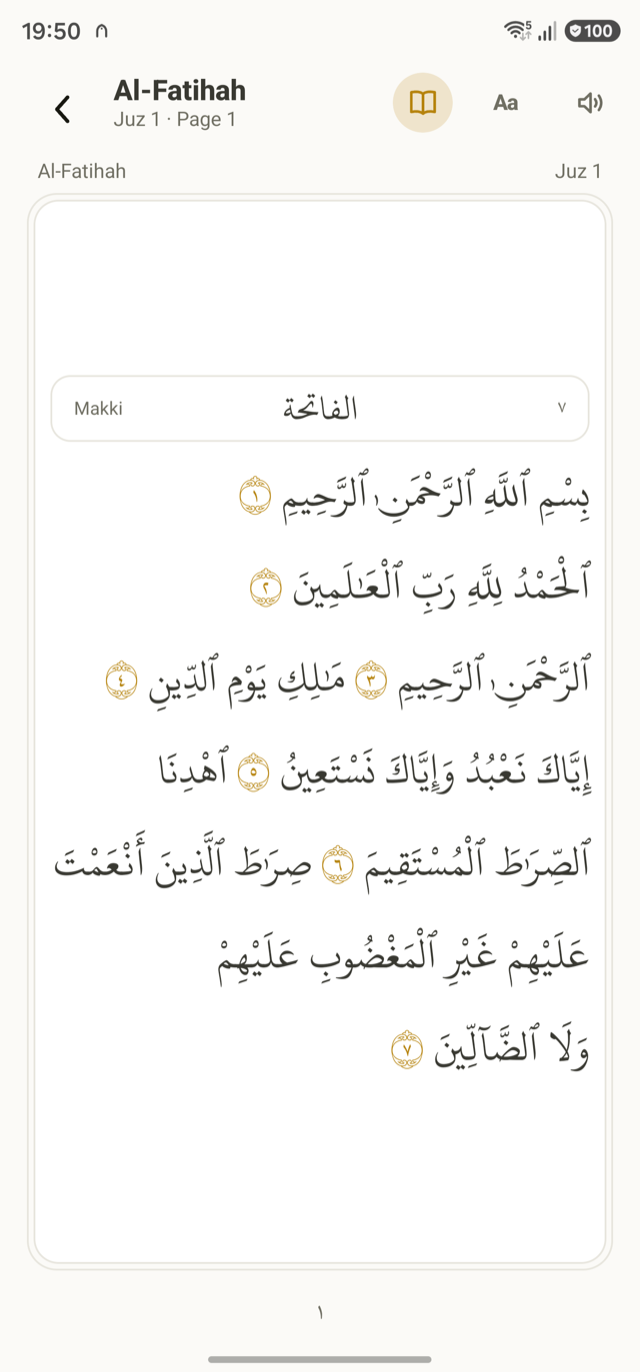 19:50
5
100
Al-Fatihah
Juz 1 · Page 1
Aa
Al-Fatihah
Juz 1
Makki
الفاتحة
٧
بِسْمِ ٱللَّهِ ٱلرَّحْمَٰنِ ٱلرَّحِيمِ ١
ٱلْحَمْدُ لِلَّهِ رَبِّ ٱلْعَٰلَمِينَ ٢
ٱلرَّحْمَٰنِ ٱلرَّحِيمِ ٣ مَٰلِكِ يَوْمِ ٱلدِّينِ ٤
إِيَّاكَ نَعْبُدُ وَإِيَّاكَ نَسْتَعِينُ ٥ ٱهْدِنَا
ٱلصِّرَٰطَ ٱلْمُسْتَقِيمَ ٦ صِرَٰطَ ٱلَّذِينَ أَنْعَمْتَ
عَلَيْهِمْ غَيْرِ ٱلْمَغْضُوبِ عَلَيْهِمْ
وَلَا ٱلضَّآلِّينَ ٧
١